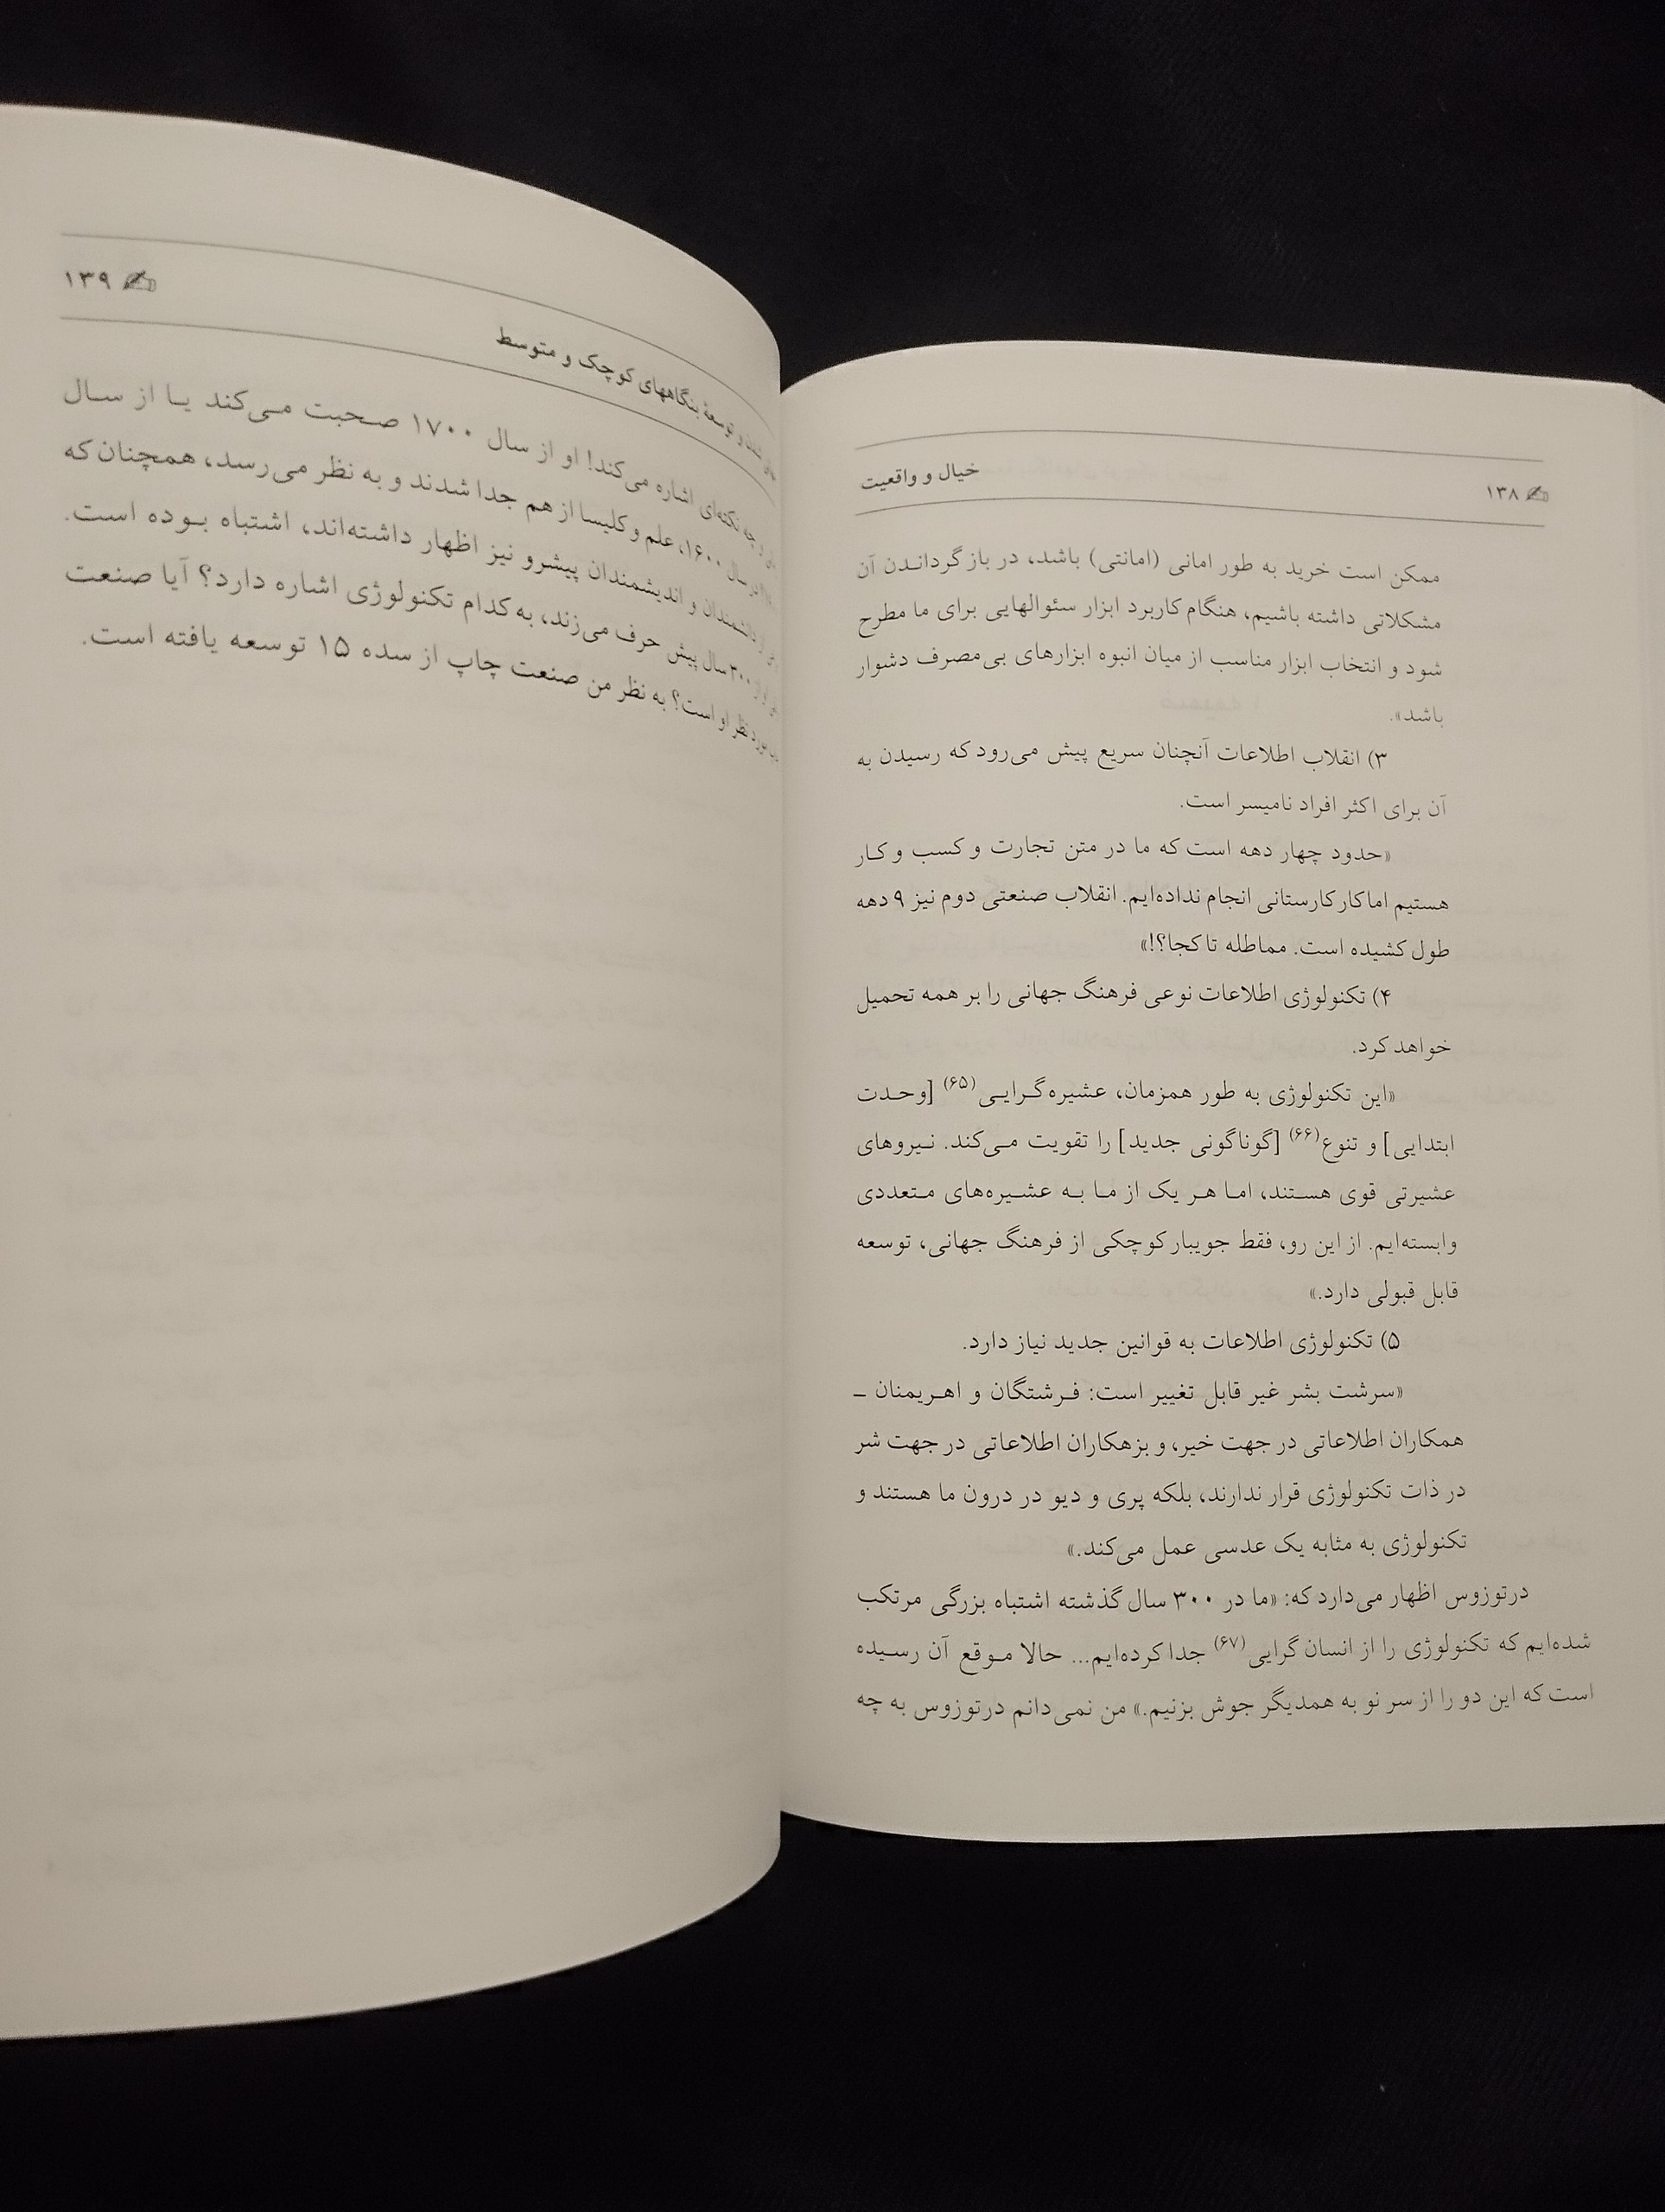 ۱۳۸
خیال و واقعیت
ممکن است خرید به طور امانی (امانتی) باشد، در بازگرداندن آن
مشکلاتی داشته باشیم، هنگام کاربرد ابزار سئوالهایی برای ما مطرح
شود و انتخاب ابزار مناسب از میان انبوه ابزارهای بی‌مصرف دشوار
باشد».
۳) انقلاب اطلاعات آنچنان سریع پیش می‌رود که رسیدن به
آن برای اکثر افراد نامیسر است.
«حدود چهار دهه است که ما در متن تجارت و کسب و کار
هستیم اما کار کارستانی انجام نداده‌ایم. انقلاب صنعتی دوم نیز ۹ دهه
طول کشیده است. مماطله تا کجا؟!»
۴) تکنولوژی اطلاعات نوعی فرهنگ جهانی را بر همه تحمیل
خواهد کرد.
«این تکنولوژی به طور همزمان، عشیره‌گرایی(۶۵) [وحدت
ابتدایی] و تنوع(۶۶) [گوناگونی جدید] را تقویت می‌کند. نیروهای
عشیرتی قوی هستند، اما هر یک از ما به عشیره‌های متعددی
وابسته‌ایم. از این رو، فقط جویبار کوچکی از فرهنگ جهانی، توسعه
قابل قبولی دارد.»
۵) تکنولوژی اطلاعات به قوانین جدید نیاز دارد.
«سرشت بشر غیر قابل تغییر است: فرشتگان و اهریمنان –
همکاران اطلاعاتی در جهت خیر، و بزهکاران اطلاعاتی در جهت شر
در ذات تکنولوژی قرار ندارند، بلکه پری و دیو در درون ما هستند و
تکنولوژی به مثابه یک عدسی عمل می‌کند.»
درتوزوس اظهار می‌دارد که: «ما در ۳۰۰ سال گذشته اشتباه بزرگی مرتکب
شده‌ایم که تکنولوژی را از انسان گرایی(۶۷) جدا کرده‌ایم... حالا موقع آن رسیده
است که این دو را از سر نو به همدیگر جوش بزنیم.» من نمی‌دانم درتوزوس به چه
و توسعهٔ بنگاههای کوچک و متوسط
۱۳۹
چه نکته‌ای اشاره می‌کند! او از سال ۱۷۰۰ صحبت می‌کند یا از سال
سال ۱۶۰۰، علم و کلیسا از هم جدا شدند و به نظر می‌رسد، همچنان که
دانشمندان و اندیشمندان پیشرو نیز اظهار داشته‌اند، اشتباه بوده است.
۳۰۰ سال پیش حرف می‌زند، به کدام تکنولوژی اشاره دارد؟ آیا صنعت
مورد نظر او است؟ به نظر من صنعت چاپ از سده ۱۵ توسعه یافته است.